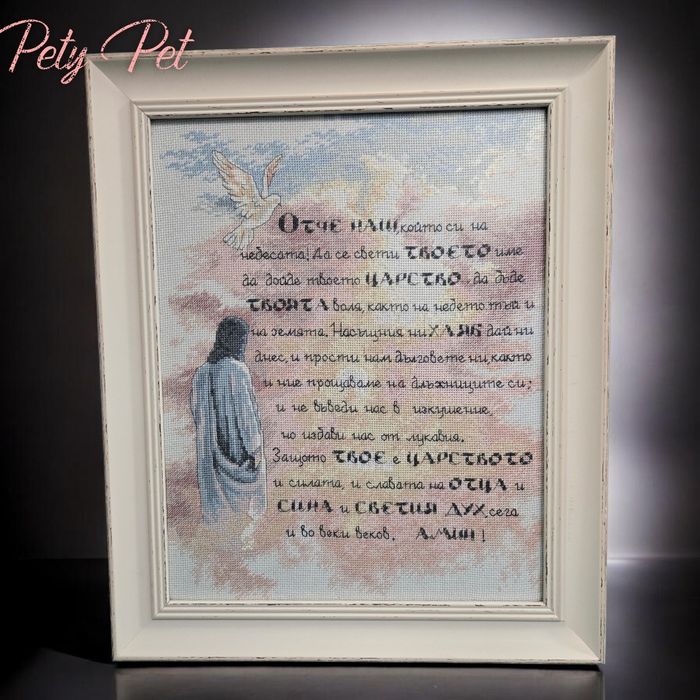 Pety Pet
Отче наш, който си на
небесата! Да се свети твоето име
да дойде твоето царство, да бъде
твоята воля, както на небето тъй и
на земята. Насъщния ни хляб дай ни
днес, и прости нам дълговете ни, както
и ние прощаваме на длъжниците си;
и не въведи нас в изкушение,
но избави нас от лукавия.
Защото твое е царството
и силата, и славата на Отца и
Сина и Светия Дух, сега
и во веки веков. Амин!